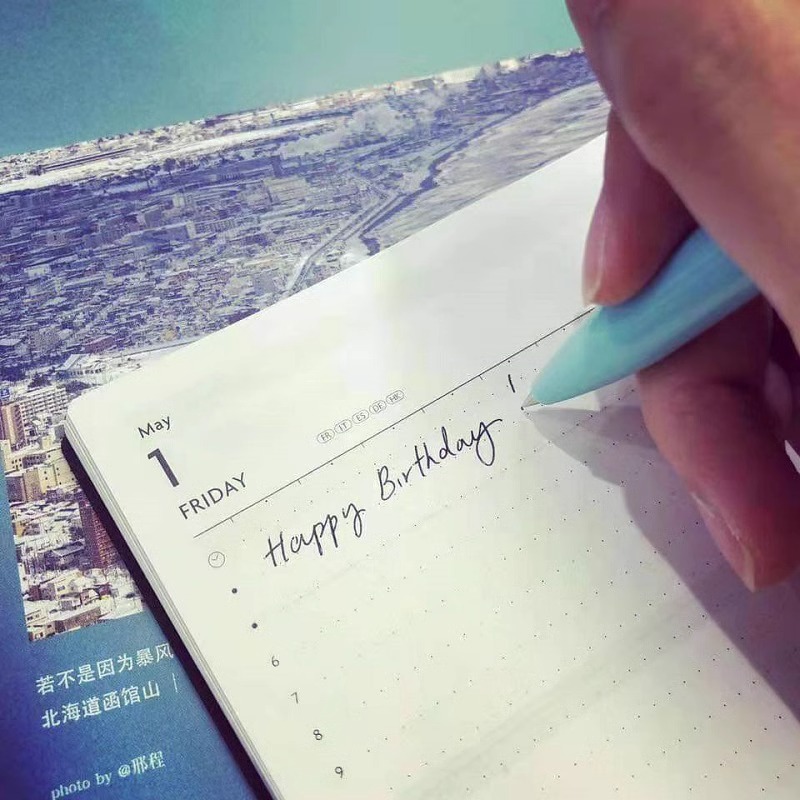 May
1
FRIDAY
FR IT ES DE HK
Happy Birthday !
6
7
8
9
若不是因为暴风
北海道函馆山 |
photo by @邢程